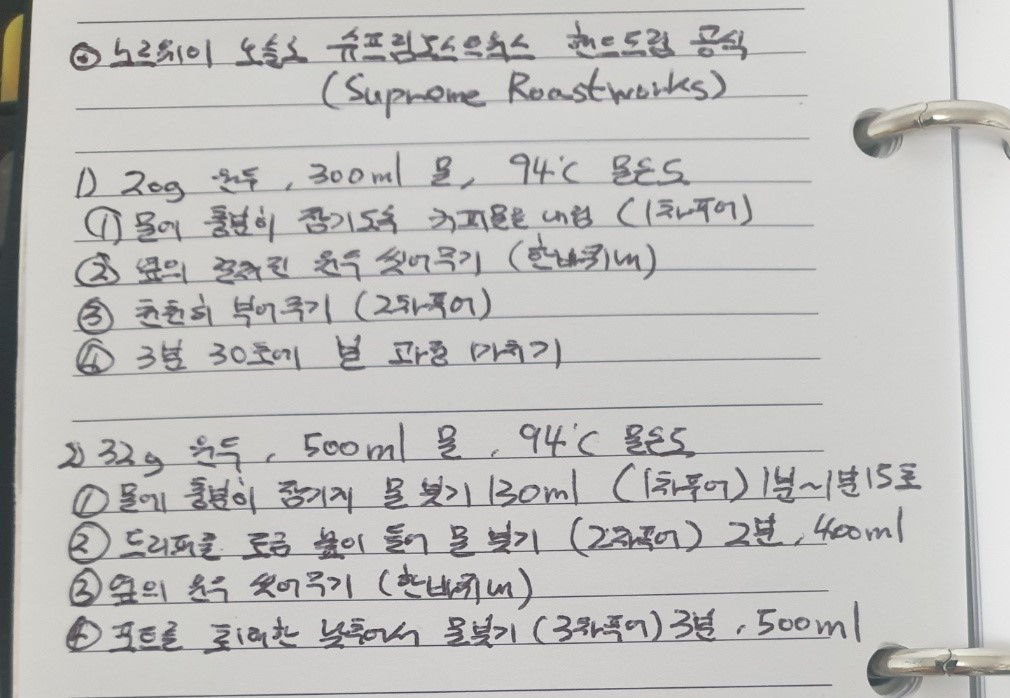 ◎ 노르웨이 오슬로 슈프림로스트웍스 핸드드립 공식
(Supreme Roastworks)
1) 20g 원두, 300ml 물, 94℃ 물온도
① 물에 충분히 잠기도록 커피물을 내림 (1차푸어)
② 옆의 원두 씻어주기 (한바퀴내)
③ 천천히 부어주기 (2차푸어)
④ 3분 30초에 모든 과정 마치기
2) 32g 원두, 500ml 물, 94℃ 물온도
① 물에 충분히 잠기게 물 붓기 130ml (1차푸어) 1분~1분15초
② 드리퍼를 조금 높이 들어 물 붓기 (2차푸어) 2분, 400ml
③ 옆의 원두 씻어주기 (한바퀴내)
④ 포트를 최대한 낮추어서 물붓기 (3차푸어) 3분, 500ml